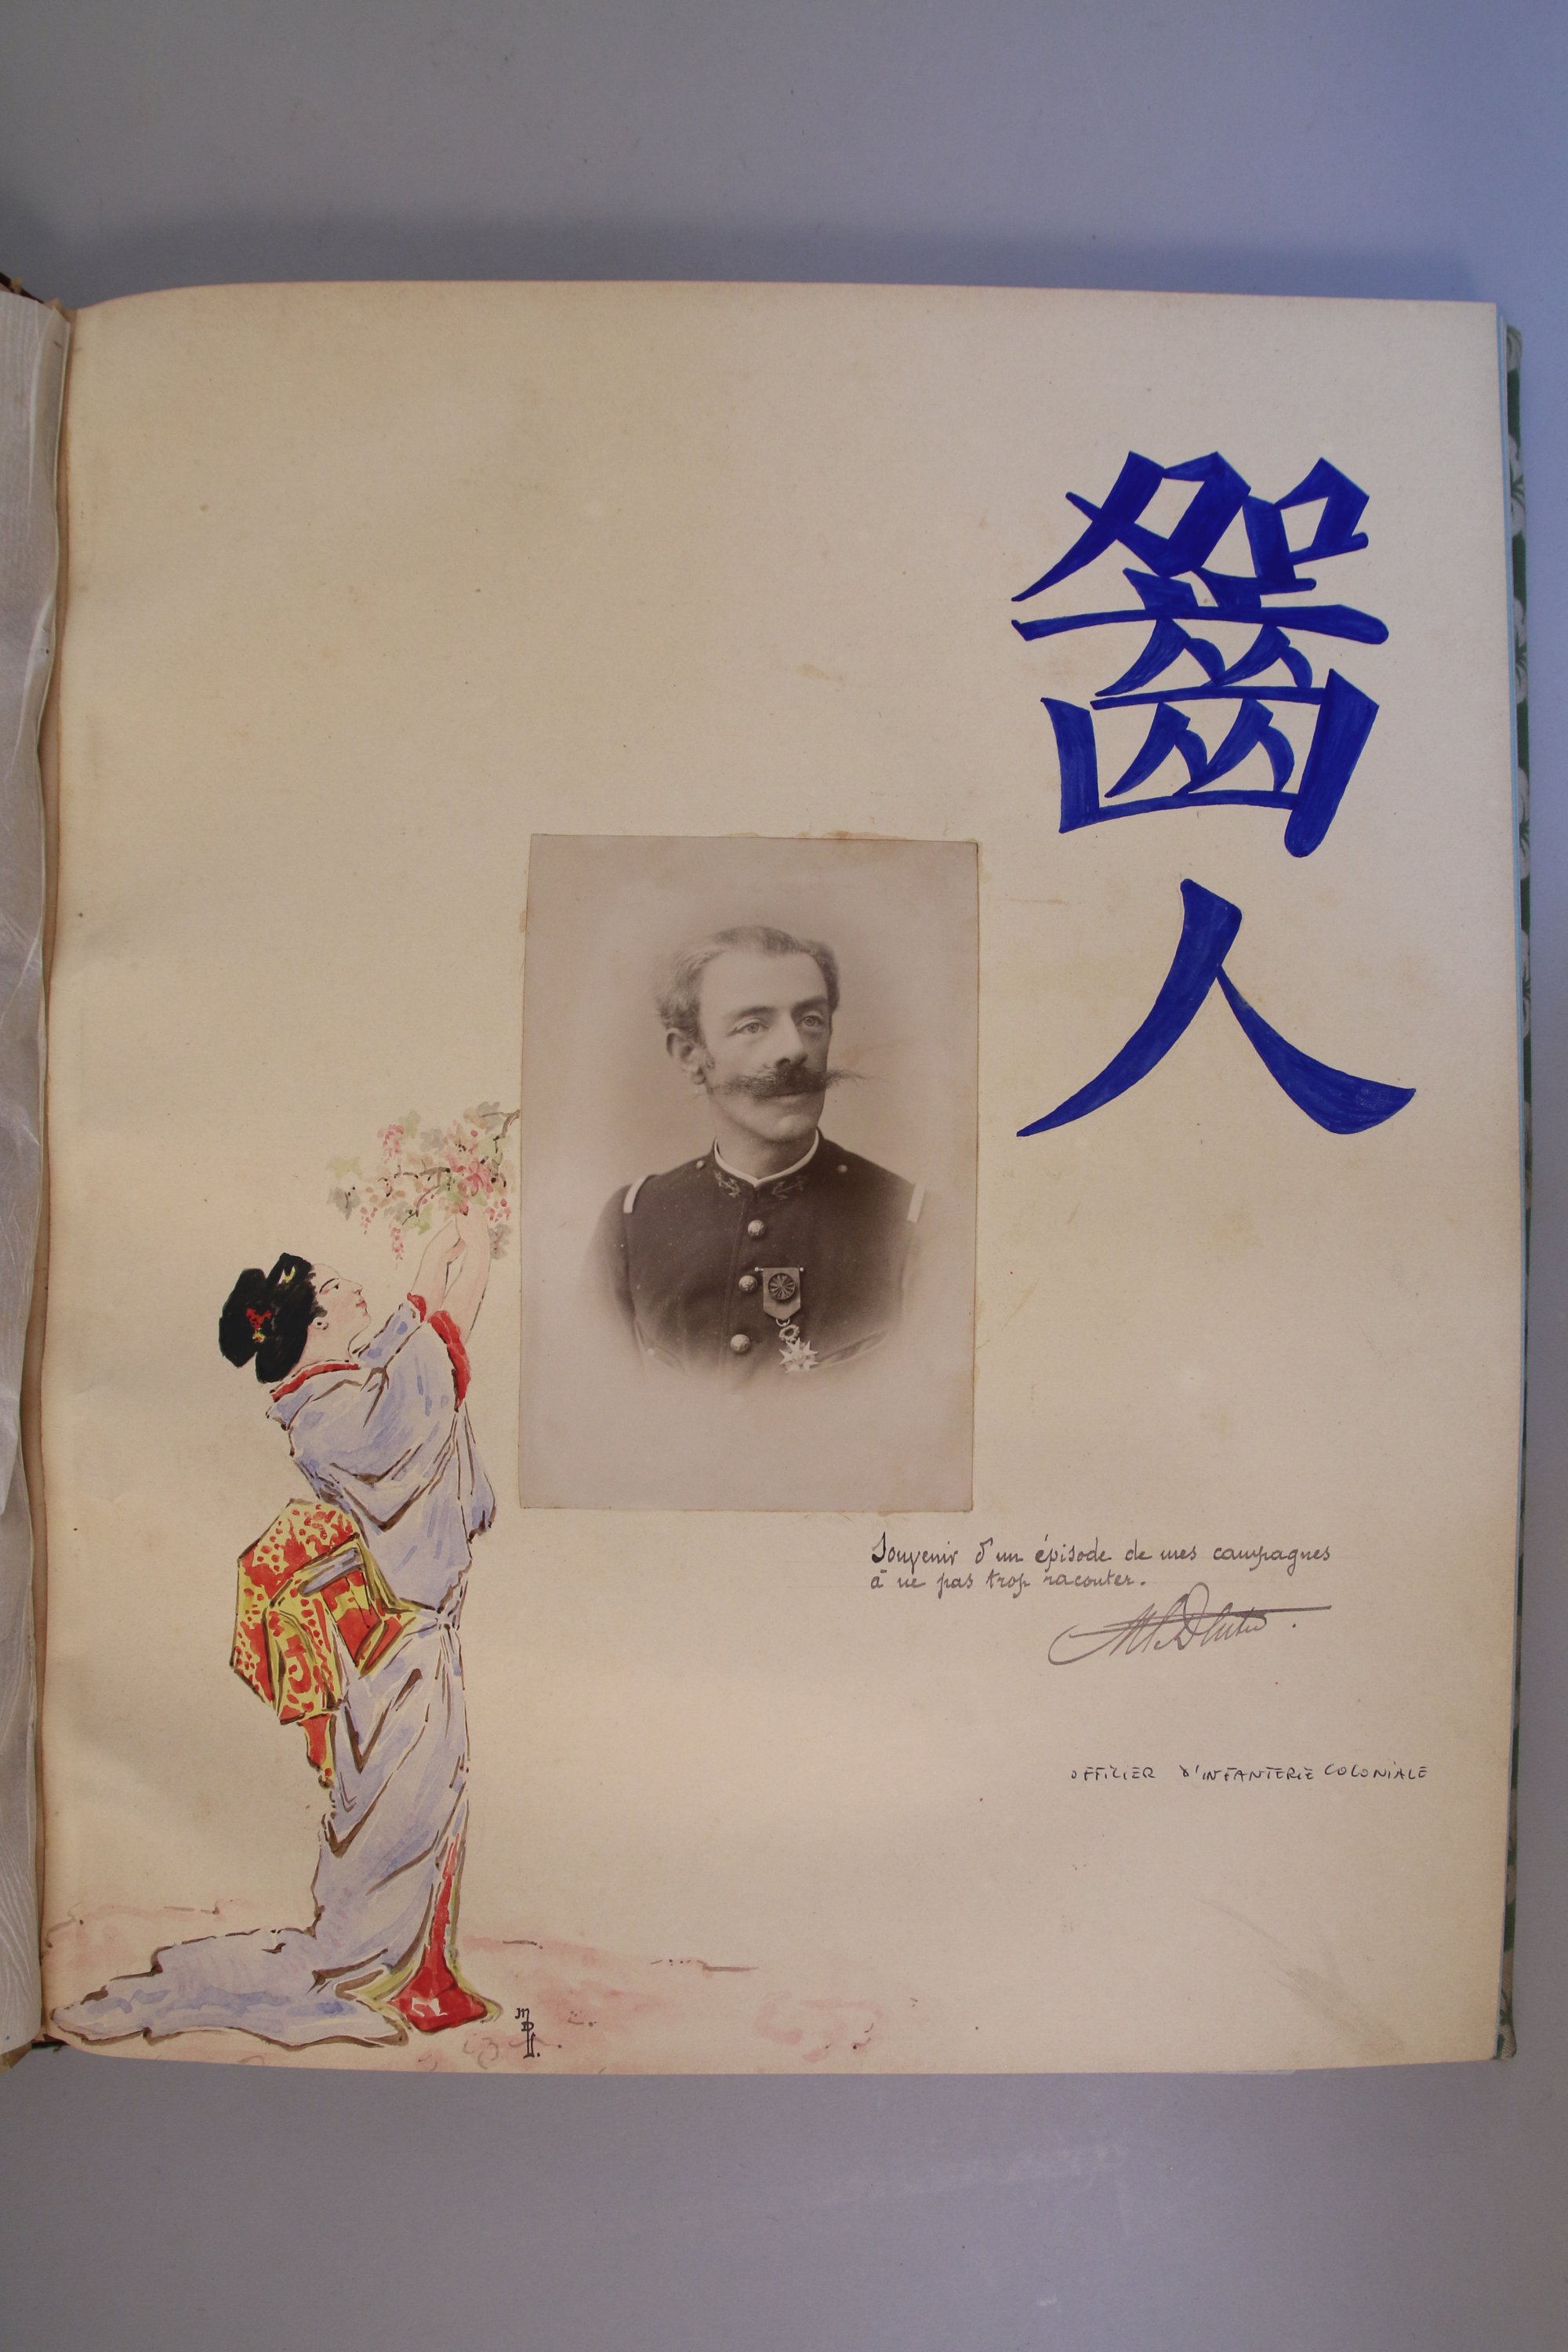 人
Souvenir d'un épisode de mes campagnes
à ne pas trop raconter.
OFFICIER D'INFANTERIE COLONIALE